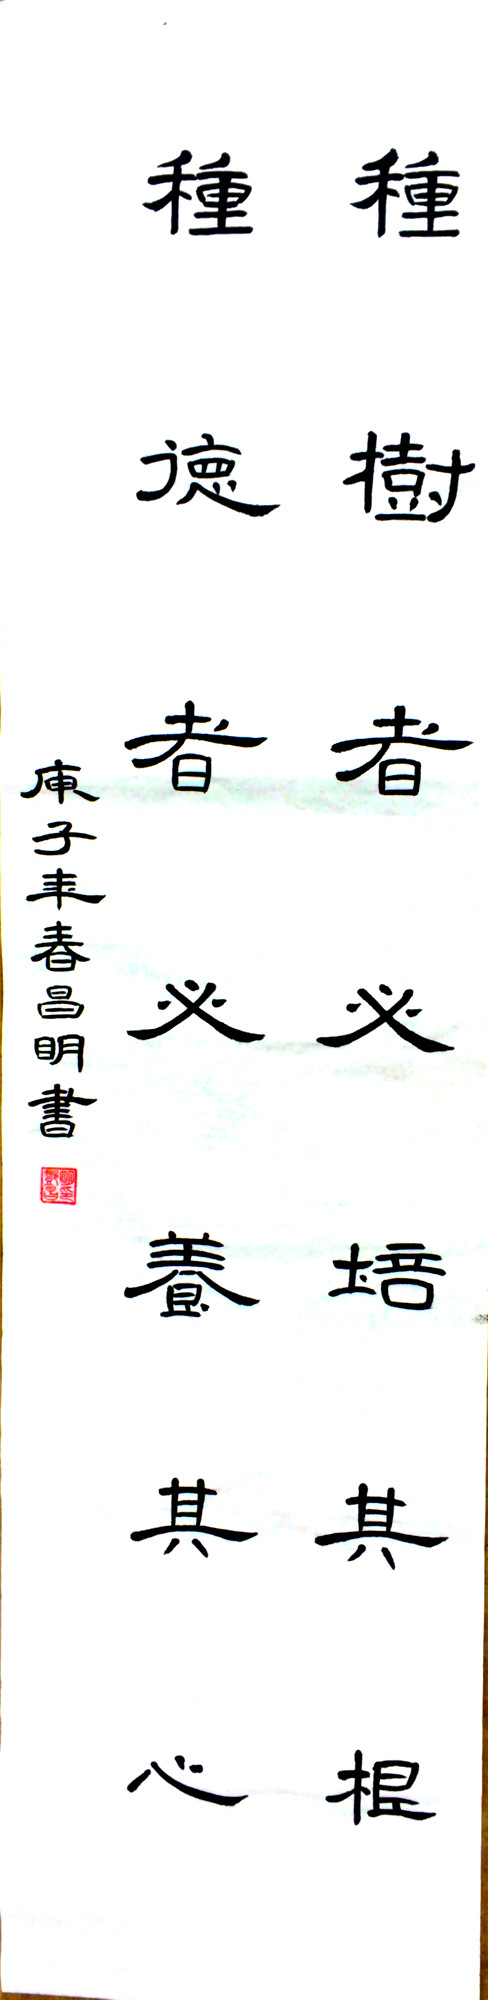 種樹者必培其根
種德者必養其心
庚子年春昌明書